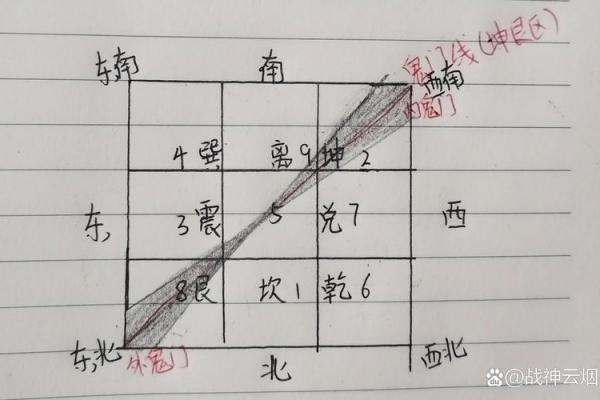 东南
南
西南
鬼门线(坤艮区)
内鬼门
4 巽
离 9
坤 2
东
3 震
5
兑 7
西
8 艮
坎 1
乾 6
东北
外鬼门
北
西北
@战神云烟